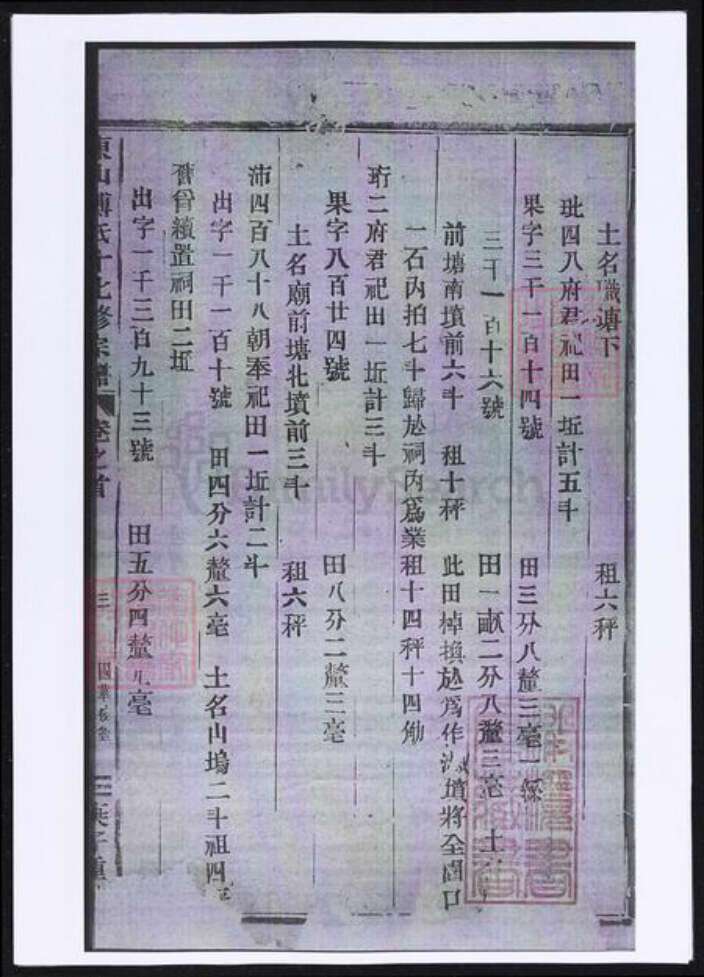 土名職塘下 租六秤
玭四八府君祀田一坵計五斗
果字三千一百十四號 田三分八釐三毫一絲
三千一百十六號 田一畝二分八釐三毫 土
前塘南墳前六斗 租十秤 此田掉換彂爲作 墳將全
一石內拍七斗歸彂祠內爲業租十四秤十四觔
珩二府君祀田一坵計三斗
果字八百廿四號 田八分二釐三毫
土名廟前塘北墳前三斗 租六秤
沛四百八十八朝奉祀田一坵計二斗
出字一千一百十號 田四分六釐六毫 土名山塢二斗租四
曾續置祠田二坵
出字一千三百九十三號 田五分四釐 毫
東山傅氏十七修宗譜 卷之首 三